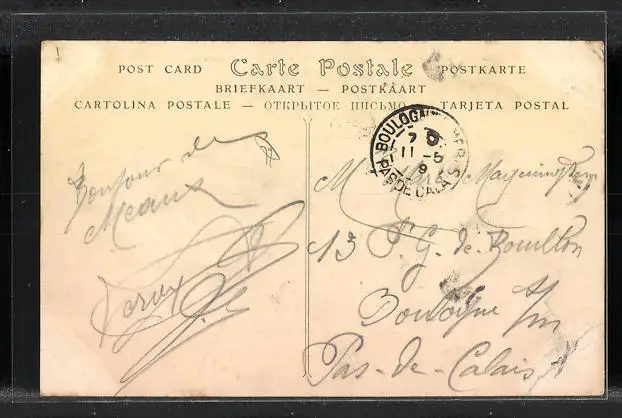 POST CARD Carte Postale POSTKARTE
BRIEFKAART — POSTKAART
CARTOLINA POSTALE — ОТКРЫТОЕ ПИСЬМО — TARJETA POSTAL
BOULOGNE
11 -5
PAS DE CALAIS
Bonjour de
Meaux
M
13 G. de Bouillon
Boulogne s/m
Pas-de-Calais